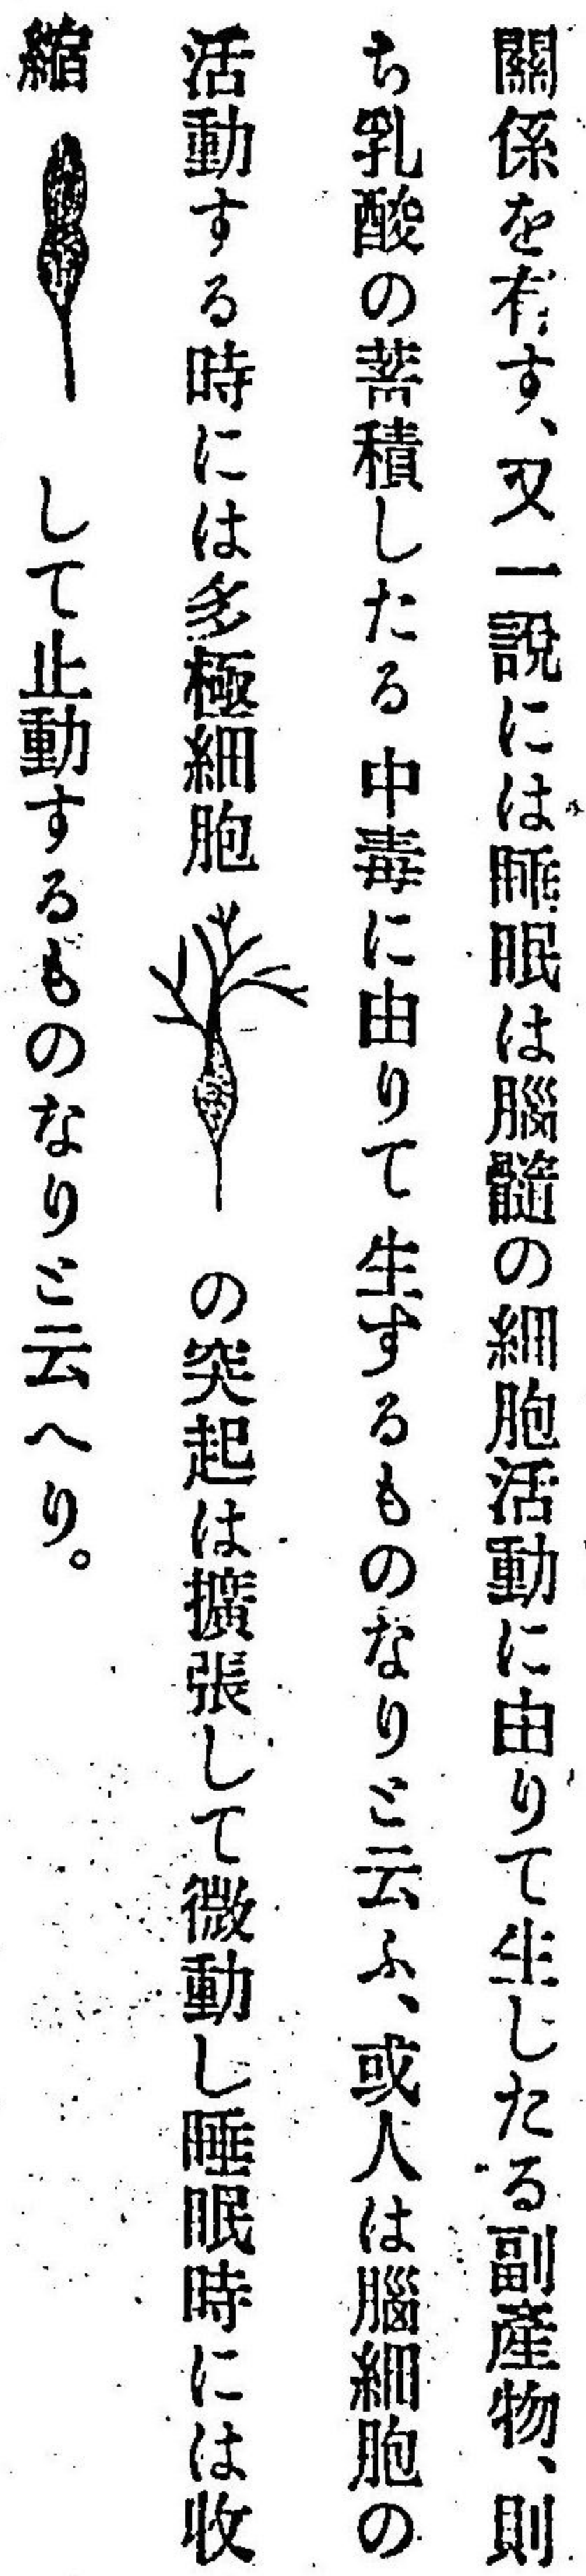 關係を有す、又一說には睡眠は腦髓の細胞活動に由りて生したる副產物、則
ち乳酸の蓄積したる中毒に由りて生するものなりと云ふ、或人は腦細胞の
活動する時には多極細胞の突起は擴張して微動し睡眠時には收
縮して止動するものなりと云へり。